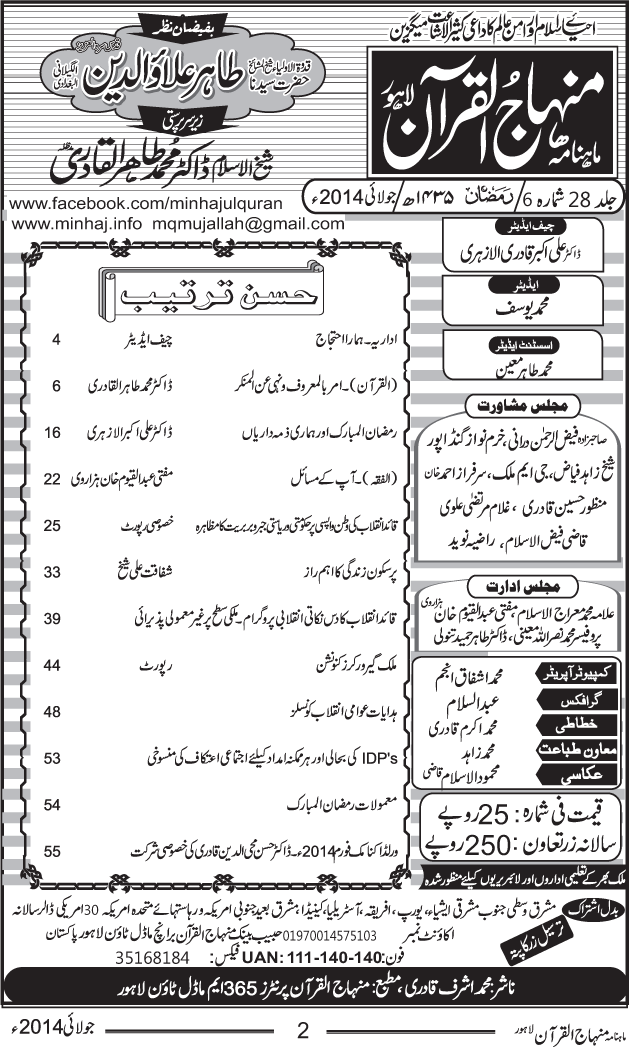 احیائے اسلام اور امن عالم کا داعی کثیر الاشاعت میگزین
ماہنامہ منہاج القرآن لاہور
بفیضانِ نظر
قدوۃ الاولیاء شیخ المشائخ حضرت سیدنا طاہر علاؤالدین الگیلانی البغدادی
زیر سرپرستی
شیخ الاسلام ڈاکٹر محمد طاہر القادری
www.facebook.com/minhajulquran
www.minhaj.info mqmujallah@gmail.com
جلد 28 شمارہ 6 / رمضان ۱۴۳۵ھ / جولائی 2014ء
چیف ایڈیٹر
ڈاکٹر علی اکبر قادری الازہری
ایڈیٹر
محمد یوسف
اسسٹنٹ ایڈیٹر
محمد طاہر معین
مجلس مشاورت
صاحبزادہ فیض الرحمٰن درانی، خرم نواز گنڈاپور
شیخ زاہد فیاض، جی ایم ملک، سرفراز احمد خان
منظور حسین قادری، غلام مرتضیٰ علوی
قاضی فیض الاسلام، راضیہ نوید
مجلس ادارت
علامہ محمد معراج الاسلام، مفتی عبدالقیوم خان ہزاروی
پروفیسر محمد نصراللہ معینی، ڈاکٹر طاہر حمید تنولی
کمپیوٹر آپریٹر محمد اشفاق انجم
گرافکس عبدالسلام
خطاطی محمد اکرم قادری
معاون طباعت محمد زاہد
عکاسی محمود الاسلام قاضی
قیمت فی شمارہ: 25 روپے
سالانہ زرتعاون: 250 روپے
ملک بھر کے تعلیمی اداروں اور لائبریریوں کیلئے منظور شدہ
حسن ترتیب
اداریہ۔ ہمارا احتجاج چیف ایڈیٹر 4
(القرآن)۔ امر بالمعروف ونہی عن المنکر ڈاکٹر محمد طاہر القادری 6
رمضان المبارک اور ہماری ذمہ داریاں ڈاکٹر علی اکبر الازہری 16
(الفقہ)۔ آپ کے مسائل مفتی عبدالقیوم خان ہزاروی 22
قائد انقلاب کی وطن واپسی پر حکومتی وریاستی جبر وبربریت کا مظاہرہ خصوصی رپورٹ 25
پرسکون زندگی کا اہم راز شفاقت علی شیخ 33
قائد انقلاب کا دس نکاتی انقلابی پروگرام۔ ملکی سطح پر غیر معمولی پذیرائی 39
ملک گیر ورکرز کنونشن رپورٹ 44
ہدایات عوامی انقلاب کونسلز 48
IDP's کی بحالی اور ہر ممکنہ امداد کیلئے اجتماعی اعتکاف کی منسوخی 53
معمولات رمضان المبارک 54
ورلڈ اکنامک فورم 2014ء۔ ڈاکٹر حسن محی الدین قادری کی خصوصی شرکت 55
بدل اشتراک مشرق وسطیٰ جنوب مشرقی ایشیاء، یورپ، افریقہ، آسٹریلیا، کینیڈا، مشرق بعید جنوبی امریکہ و ریاستہائے متحدہ امریکہ 30 امریکی ڈالر سالانہ
ترسیل زر کا پتہ اکاؤنٹ نمبر 01970014575103 حبیب بینک منہاج القرآن برانچ ماڈل ٹاؤن لاہور پاکستان
فون: UAN: 111-140-140 فیکس: 35168184
ناشر: محمد اشرف قادری، مطبع: منہاج القرآن پرنٹرز 365 ایم ماڈل ٹاؤن لاہور
ماہنامہ منہاج القرآن لاہور 2 جولائی 2014ء